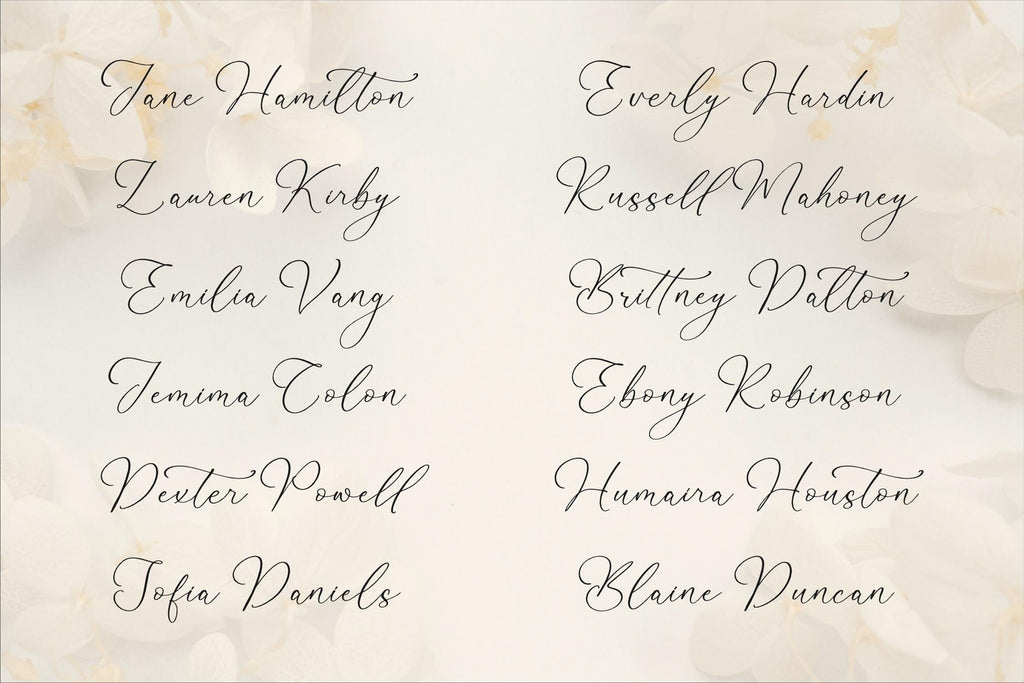 Jane Hamilton
Lauren Kirby
Emilia Vang
Jemima Colon
Dexter Powell
Sofia Daniels
Everly Hardin
Russell Mahoney
Brittney Dalton
Ebony Robinson
Humaira Houston
Blaine Duncan